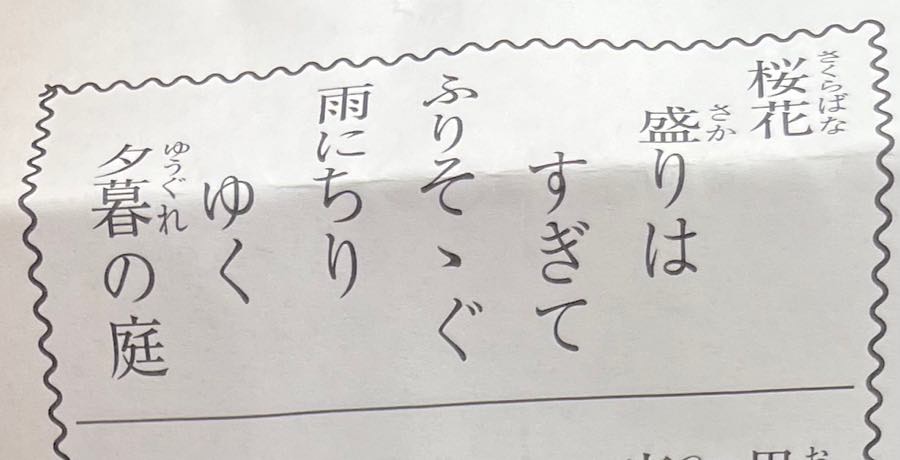 桜花
さくらばな
盛りは
さか
すぎて
ふりそゝぐ
雨にちり
ゆく
夕暮の庭
ゆうぐれ